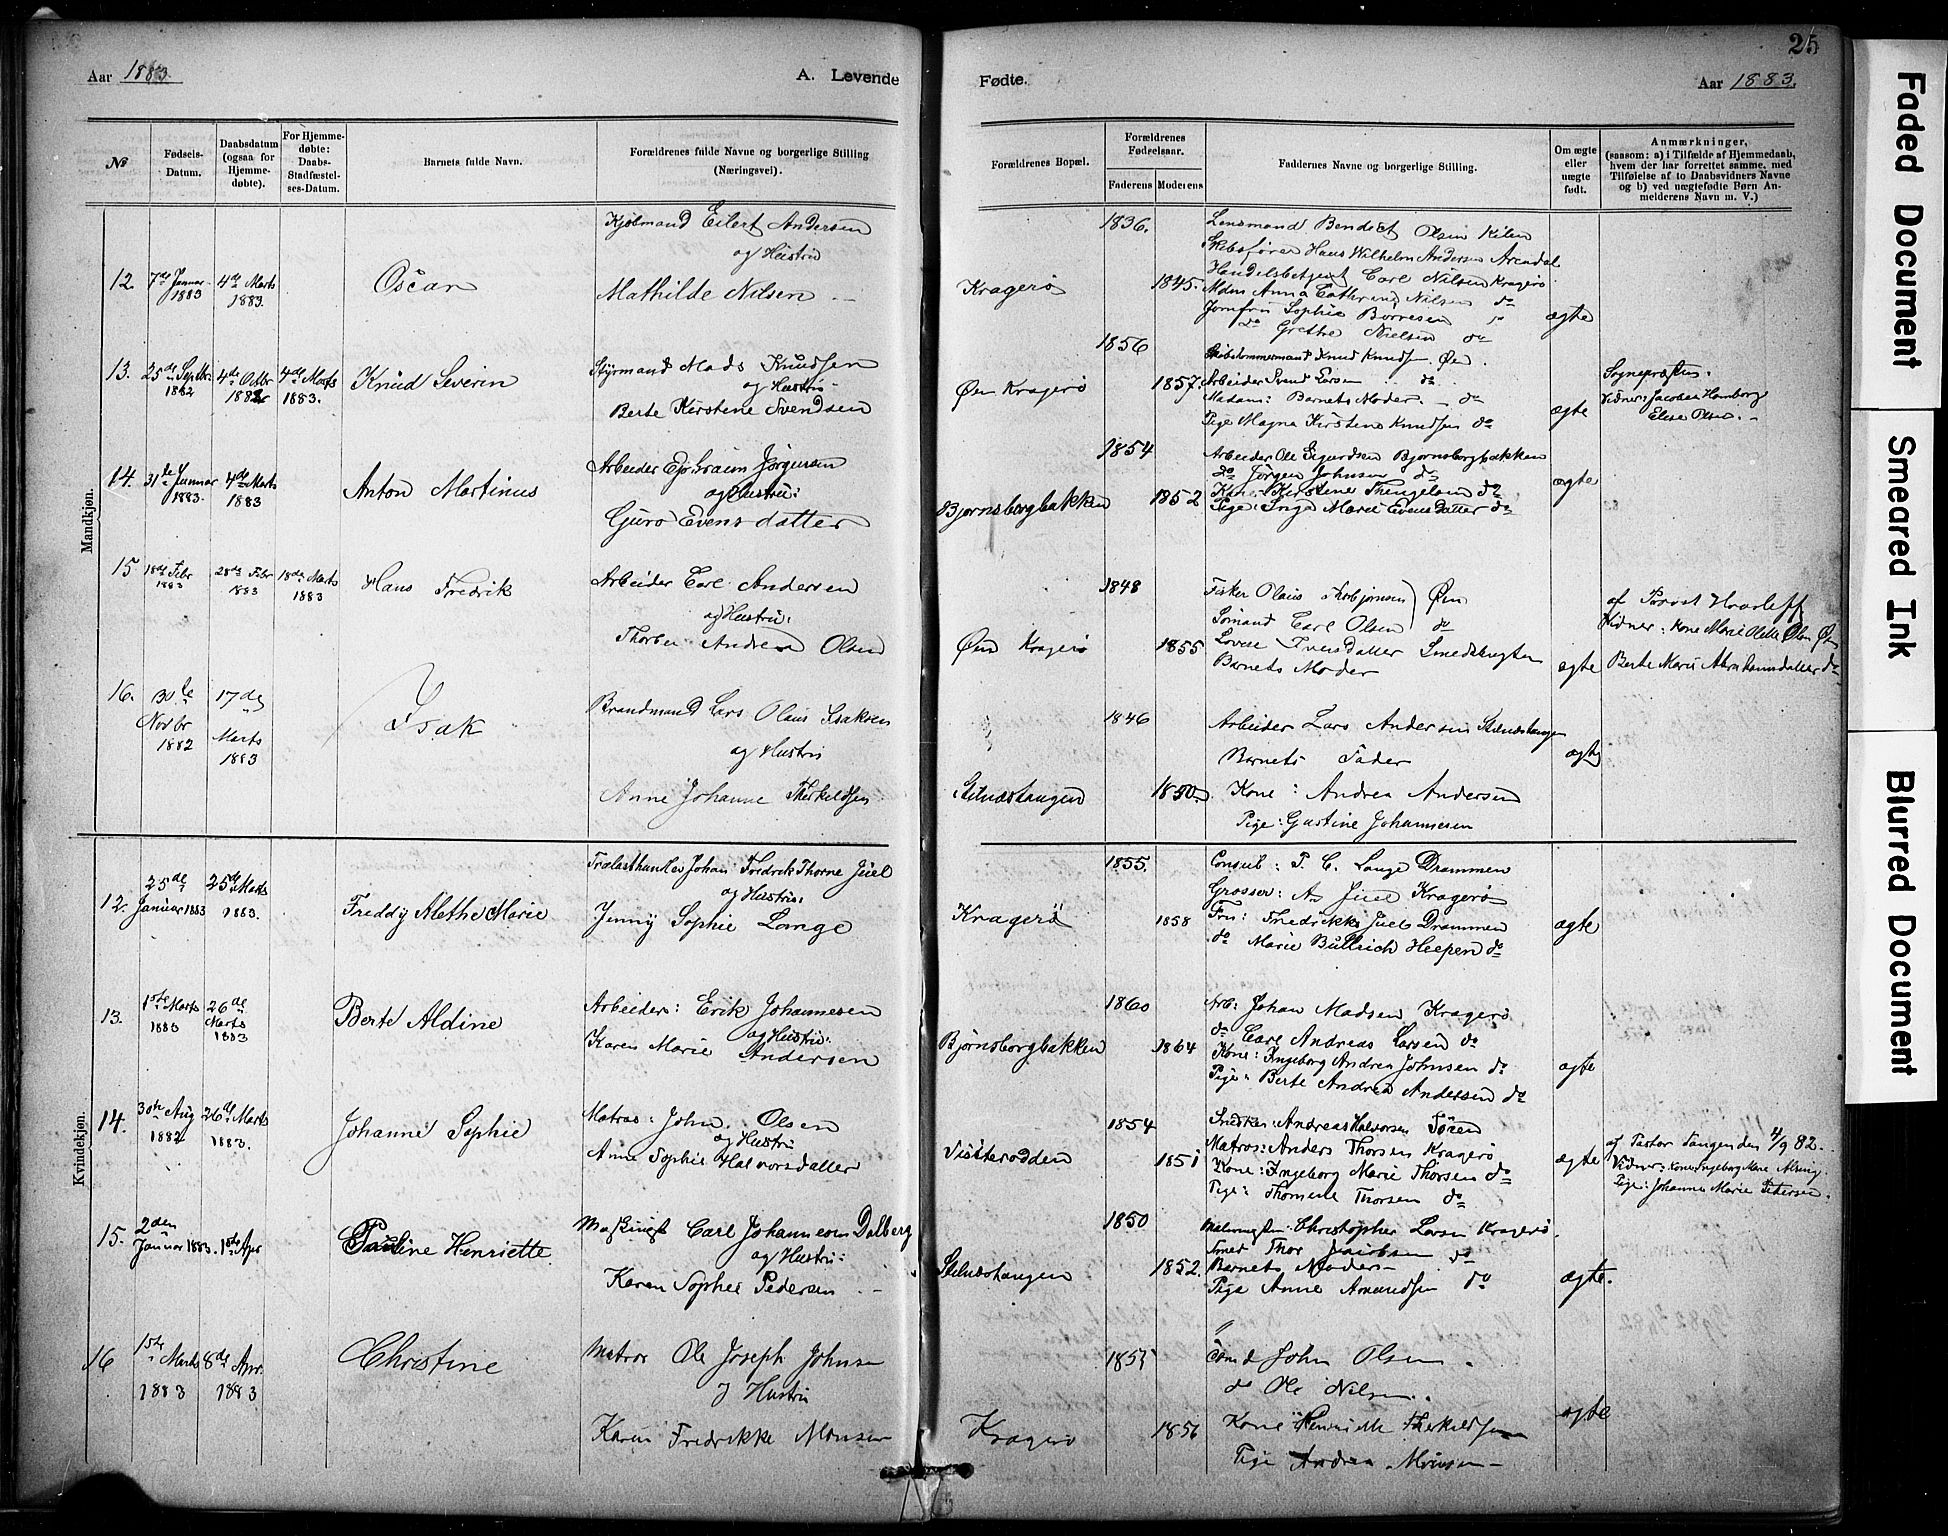 25
Aar 1883.
A. Levende
Fødte.
Aar 1883.
Faded Document
Smeared Ink
Blurred Document
№
Fødsels-
Datum.
Daabsdatum
(ogsaa for
Hjemme-
døbte).
For Hjemme-
døbte:
Daabs-
Stadfæstel-
ses-Datum.
Barnets fulde Navn.
Forældrenes fulde Navne og borgerlige Stilling
(Næringsvei).
Forældrenes Bopæl.
Forældrenes
Fødselsaar.
Faderens
Moderens
Faddernes Navne og borgerlige Stilling.
Om ægte
eller
uægte
født.
Anmærkninger,
(saasom: a) i Tilfælde af Hjemmedaab,
hvem der har forrettet samme, med
Tilføielse af to Daabsvidners Navne
og b) ved uægtefødte Børn An-
melderens Navn m. V.)
Mandkjøn.
12.
7de Januar
1883
4de Marts
1883.
Oscar
Kjøbmand Eilert Andersen
og Hustru
Mathilde Nilsen
Kragerø
1836.
1845.
Lensmand Bendict Olsen Kilen
Skibsfører Hans Wilhelm Andersen Arendal
Carl Nilsen Kragerø
Mdm Anna Cathrine Nilsen do
Jomfru Sophie Borresen do
do Grethe Nielsen do
ægte
13.
25de Septbr
1882
4de Octbr
1882
4de Marts
1883.
Knud Severin
Styrmand Mads Knudsen
og Hustru
Berte Kirstene Svendsen
Øen Kragerø
1856
1857.
Skibstømmermand Knud Knudsen Øen
Arbeider Svend Larsen do
Madam: Barnets Moder. do
Pige Magna Kirstene Knudsen do
ægte
Sognepræsten.
Vidner: Jacobea Homborg
Elise Olsen.
14.
31te Januar
1883.
4de Marts
1883
Anton Martinus
Arbeider Ephraim Jørgensen
og Hustru:
Guro Evensdatter
Bjørnsborgbakken
1854
1852
Arbeider Ole Sigurdsen Bjørnsborgbakken
do Jørgen Johnsen do
Kone: Kirstene Thengelsen do
Pige: Inge Marie Evensdatter do
ægte
15
18de Febr
1883
28de Febr
1883
18de Marts
1883
Hans Fredrik
Arbeider Carl Andersen
og Hustru:
Andrea Olsen
Øen Kragerø
1848
1855
Fisker Olaus Thorbjørnsen Øen
Sømand Carl Olsen do
Lovise Iversdatter
Barnets Moder
ægte
af Provst Hvosleff
Vidner: Kone Marie Olette Olsen Øen
Berte Marie Abrahamsdatter do
16.
30te
Novbr
1882
17de
Marts
1883
Isak
Brandmand Lars Olaus Isaksen
og Hustru
Anne Johanne Therkeldsen
Stilnæstangen
1846
1850.
Arbeider Lars Andersen Stilnæstangen
Barnets Fader
Kone: Andrea Andersen
Pige: Gustine Johannesen
ægte
Kvindekjøn.
12.
25de
Januar 1883
25de Marts
1883.
Freddy Alethe Marie
Trælasthandler Johan Fredrik Thorne Juel
og Hustru:
Jenny Sophie Lange
Kragerø
1855.
1858
Consul: T. C. Lange Drammen
Grosser: As Juel Kragerø
Fru: Fredrikke Juel Drammen
do Marie Bullrich Heepen do
ægte
13.
1ste Marts
1883
26de
Marts
1883
Berte Aldine
Arbeider: Erik Johannesen
og Hustru:
Karen Marie Andersen
Bjørnsborgbakken
1860
1864
Arb: Johan Madsen Kragerø
do Carl Andreas Larsen do
Kone: Ingeborg Andrea Johnsen do
Pige: Berte Andrea Andersen do
ægte
14.
30te Aug
1882
26de Marts
1883.
Johanne Sophie
Matros: John Olsen
og Hustru
Anne Sophie Halvorsdatter
Vissterodden
1854
1851
Snedker: Andreas Halvorsen Sören
Matros: Anders Thorsen Kragerø
Kone: Ingeborg Marie Thorsen do
Pige: Thomene Thorsen do
ægte
af Pastor Tangen den 4/9 82.
Vidner: Kone Ingeborg Marie
Pige: Johanne Marie Petersen.
15.
2den
Januar 1883.
1ste Apr
Pauline Henriette
Maskinist Carl Johannesen Dalberg
og Hustru:
Karen Sophie Pedersen
Stilnæstangen
1850
1852.
Christopher Larsen Kragerø.
Smed Thor Jacobsen do
Barnets Moder
Pige Anne Amundsen do
ægte.
16
1ste Marts
1883
8de Apr.
1883
Christine
Matros Ole Joseph Johnsen
og Hustru
Karen Fredrikke Monsen
Kragerø
1855
1856
Sømd John Olsen
do Ole Nilsen.
Kone Henriette Therkeldsen
Pige Andrea Monsen
ægte